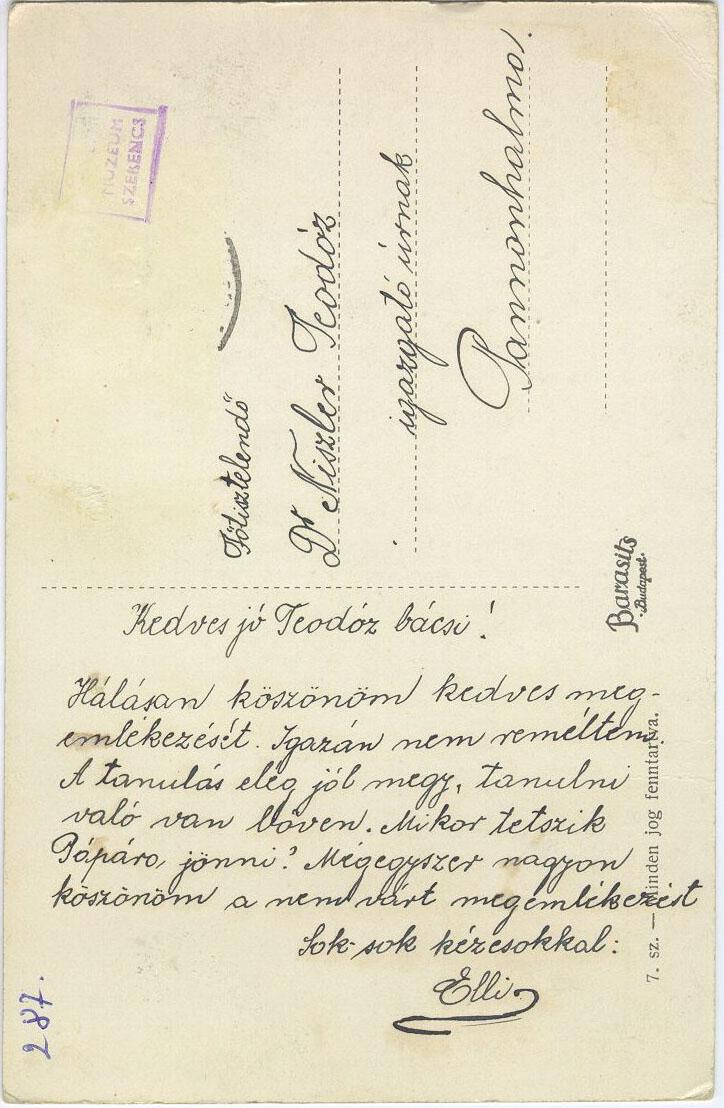 MUZEUM
SZERENCS
Főtisztelendő
Dr Niszler Teodóz
igazgató úrnak
Pannonhalma.
Barasits
Budapest.
Kedves jó Teodóz bácsi!
Hálásan köszönöm kedves meg-
emlékezését. Igazán nem reméltem.
A tanulás elég jól megy, tanulni
való van bőven. Mikor tetszik
Pápára jönni? Mégegyszer nagyon
köszönöm a nem várt megemlékezést
Sok-sok kézcsókkal:
Elli
7. sz. — Minden jog fenntartva.
287.